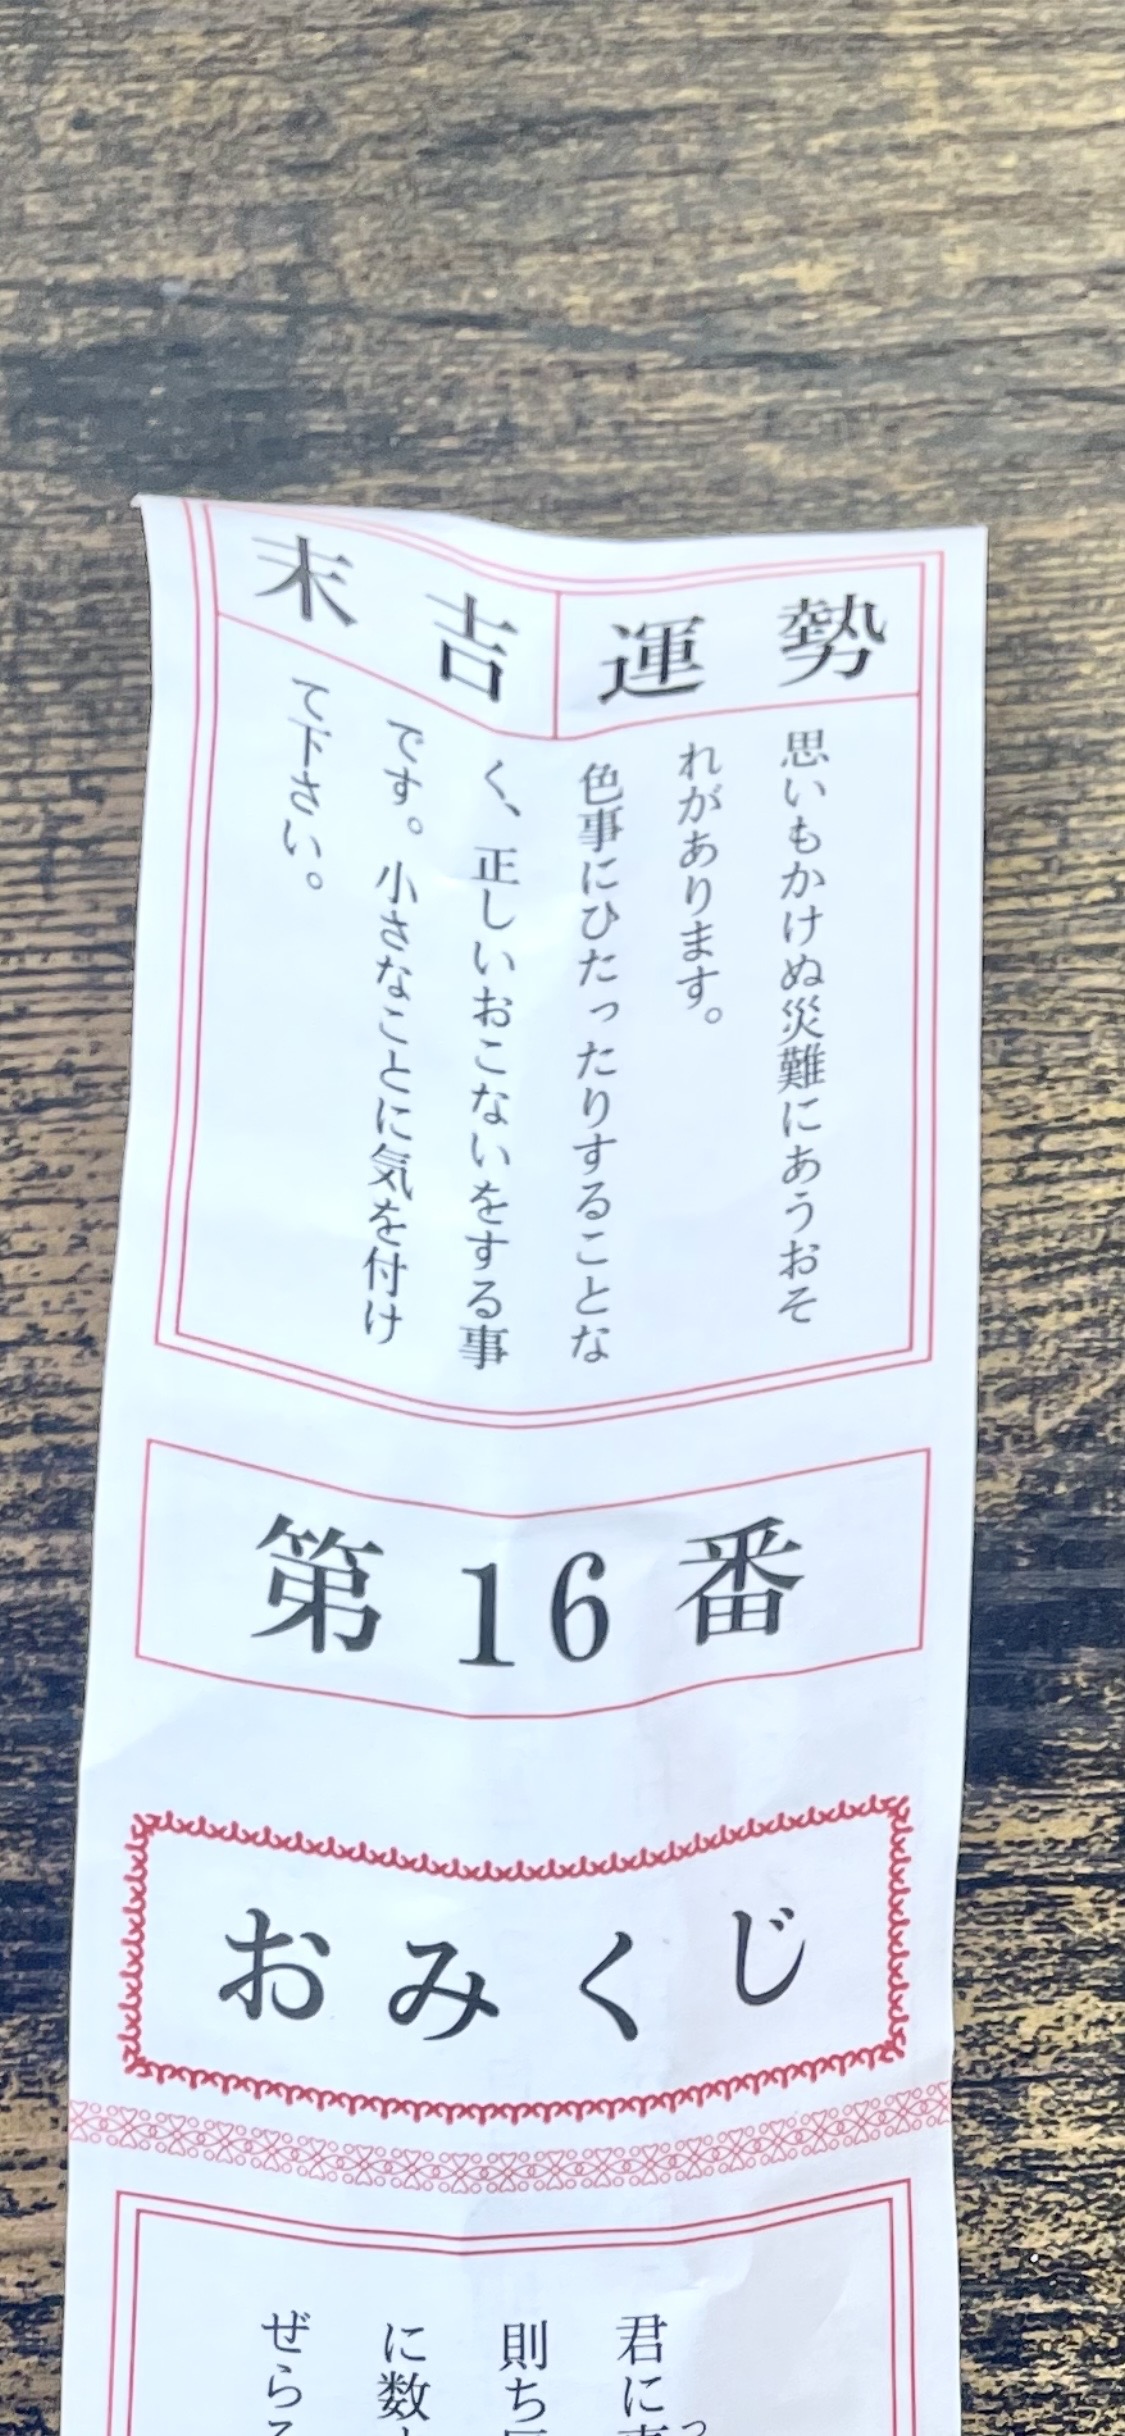 末吉
運勢
思いもかけぬ災難にあうおそ
れがあります。
色事にひたったりすることな
く、正しいおこないをする事
です。小さなことに気を付け
て下さい。
第16番
おみくじ
君に
則ち
に数
ぜら